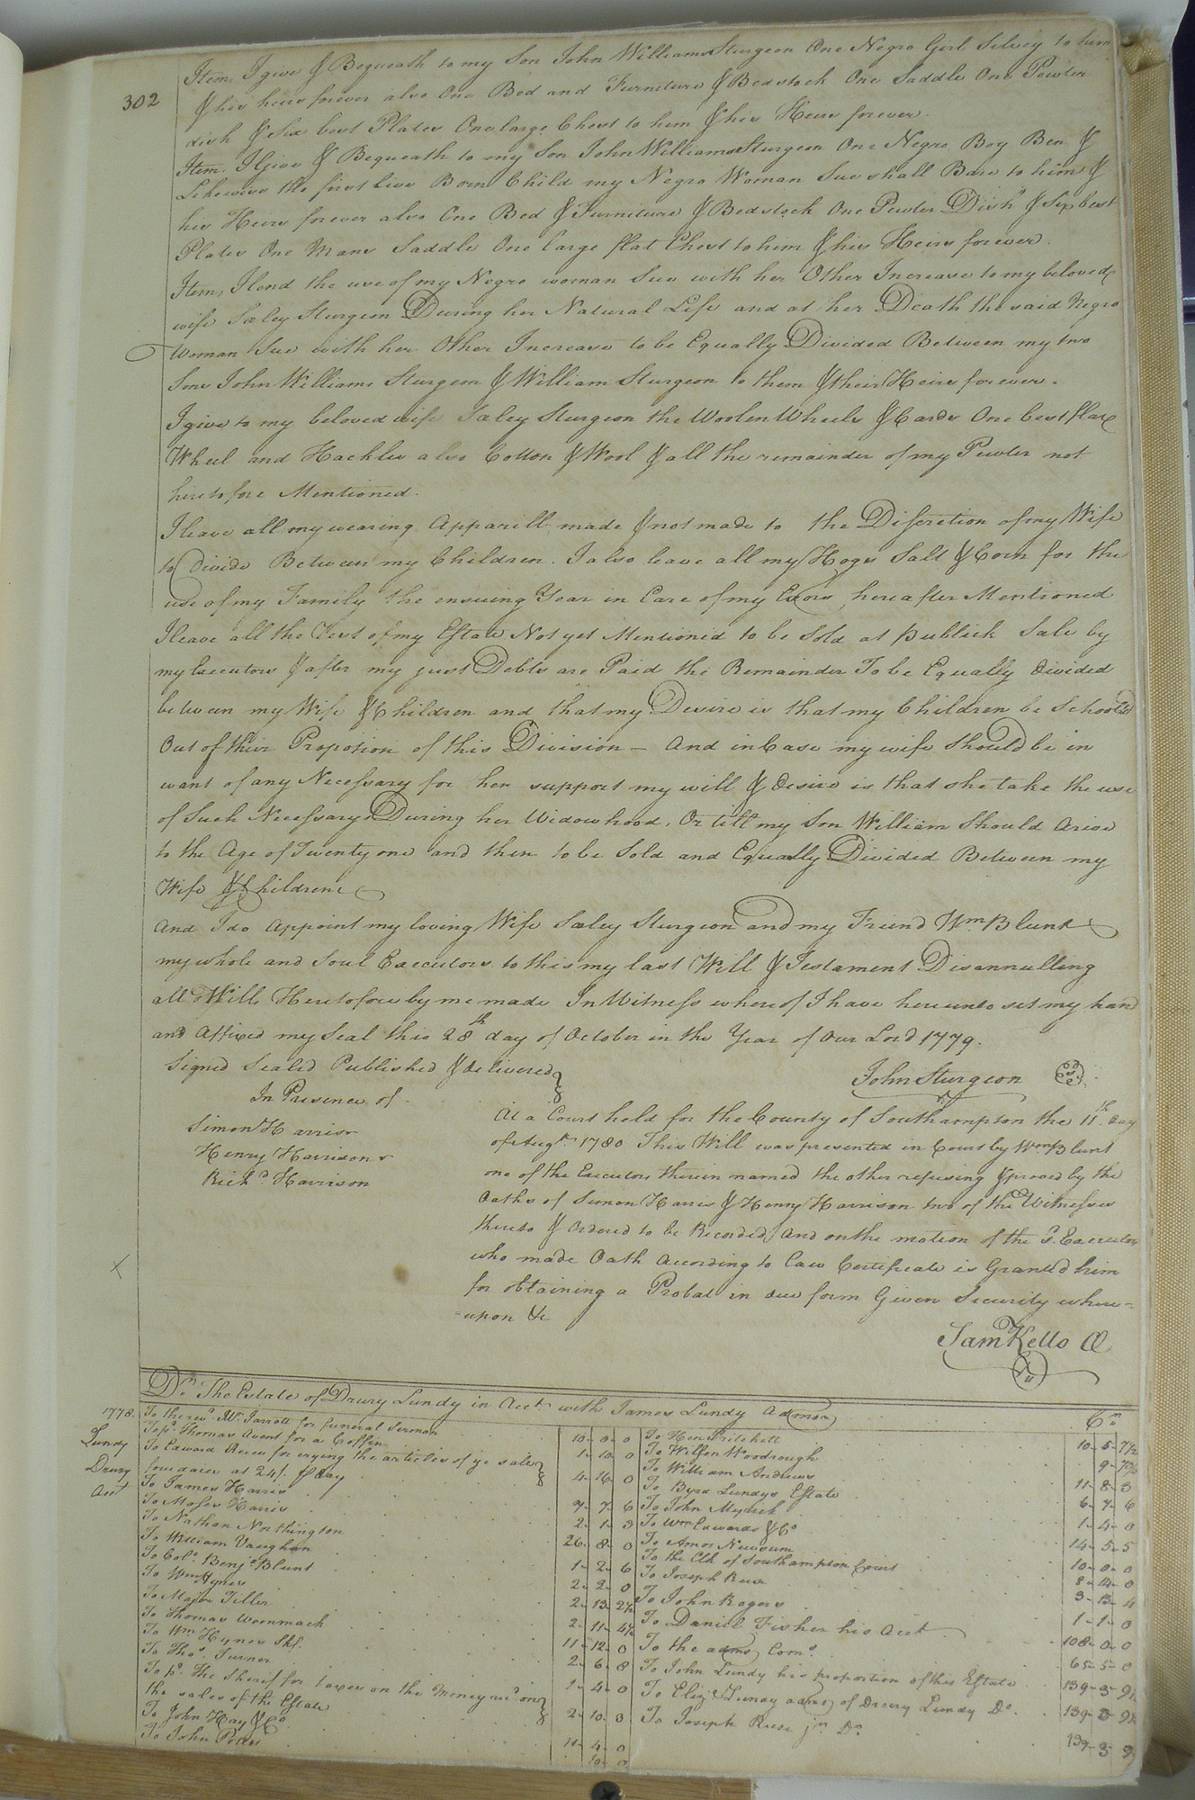 302
Item, I give & Bequeath to my Son John Williams Sturgeon One Negro Girl Silvey to him
& his heirs forever also One Bed and Furniture & Bedstock One Saddle One Pewter
dish & Six best Plates One large Chest to him & his Heirs forever.
Item, I Give & Bequeath to my Son John Williams Sturgeon One Negro Boy Ben &
Likewise the first Live Born Child my Negro Woman Sue shall Bare to him &
his Heirs forever also One Bed & Furniture & Bedstock One Pewter Dish & Six best
Plates One Mans Saddle One large flat Chest to him & his Heirs forever.
Item, I lend the use of my Negro woman Sue with her Other Increase to my beloved
wife Saley Sturgeon During her Natural Life and at her Death the said Negro
Woman Sue with her Other Increase to be Equally Divided Between my two
Sons John Williams Sturgeon & William Sturgeon to them & their Heirs forever.
I give to my beloved wife Saley Sturgeon the Woolen Wheele & Cards One best flax
Wheel and Hackles also Cotton & Wool & all the remainder of my Pewter not
heretofore Mentioned.
I leave all my wearing Apparill made & not made to the Discretion of my Wife
to Divide Between my Children. I also leave all my Hogs Salt & Corn for the
use of my Family the ensuing Year in Care of my Exors hereafter Mentioned
I leave all the Rest of my Estate Not yet Mentioned to be Sold at publick Sale by
my Executors & after my just Debts are Paid the Remainder To be Equally Divided
between my Wife & Children and that my Desire is that my Children be Schooled
Out of their Propotion of this Division — And in Case my wife Should be in
want of any Necessary for her support my will & desire is that she take the use
of Such Necessarys During her Widowhood. Or till my Son William Should Arise
to the Age of Twenty one and then to be Sold and Equally Divided Between my
Wife & Childrene
And I do Appoint my loving Wife Saley Sturgeon and my Friend Wm Blunt
my whole and Soul Executors to this my last Will & Testament Disannulling
all Wills Heretofore by me made In Witness whereof I have hereunto set my hand
and Affixed my Seal this 28th day of October in the Year of Our Lord 1779.
Signed Sealed Published & delivered
In Presence of
John Sturgeon
Simon Harris
Henry Harrison
Richd Harrison
At a Court held for the County of Southampton the 11th day
of Augt 1780 This Will was presented in Court by Wm Blunt
one of the Executors therein named the other refusing & proved by the
Oaths of Simon Harris & Henry Harrison two of the Witnesses
thereto & Ordered to be Recorded And on the motion of the sd Executor
who made Oath According to Law Certificate is Granted him
for obtaining a Probat in due form Given Security where=
=upon &c
Sam Kello
Dr The Estate of Drury Lundy in Acct with James Lundy Admor Cr
1778.
Lundy
Drury
Acct
To the revd Mr Jarratt for funeral Sermon 10 0 0
To pd Thomas Avent for a Coffin 1 10 0
To Edward for crying the articles of ye sale
four daies at 24/ pr day 4 16 0
To James Harris 7 7 6
To Moses Harris 2 1 3
To Nathan Northington 26 8 0
To William Vaughan 1 2 6
To Colo Benja Blunt 2 2 0
To Wm Hynes 2 13 2½
To Major Tiller 2 11 4½
To Thomas Wommack 11 12 0
To Wm Hynes Shf. 2 6 8
To Thos Turner 1 4 0
To pd The Sherif for taxes on the Money
the sales of the Estate 2 10 3
To John Hay & Co 11 4 0
To John 10 0
To Hen Pritchett 10 5 7½
To Wilson Woodrough 9 7½
To William Andrews 11 8 3
To Byrd Lundys Estate 6 7 6
To John Myrick 1 4 0
To Wm Edwards & Co 14 5 5
To Amos Newsum 10 0 0
To the Clk of Southampton Court 8 14 0
To Joseph Rese 3 13 4
To John Rogers 1 1 0
To Daniel Fisher his Acct 108 0 0
To the adms Coms 65 5 0
To John Lundy his proportion of this Estate 139 3 9½
To Eliza Lundy admx of Drury Lundy Do. 139 3 9½
To Joseph Rese jnr Do 139 3 9